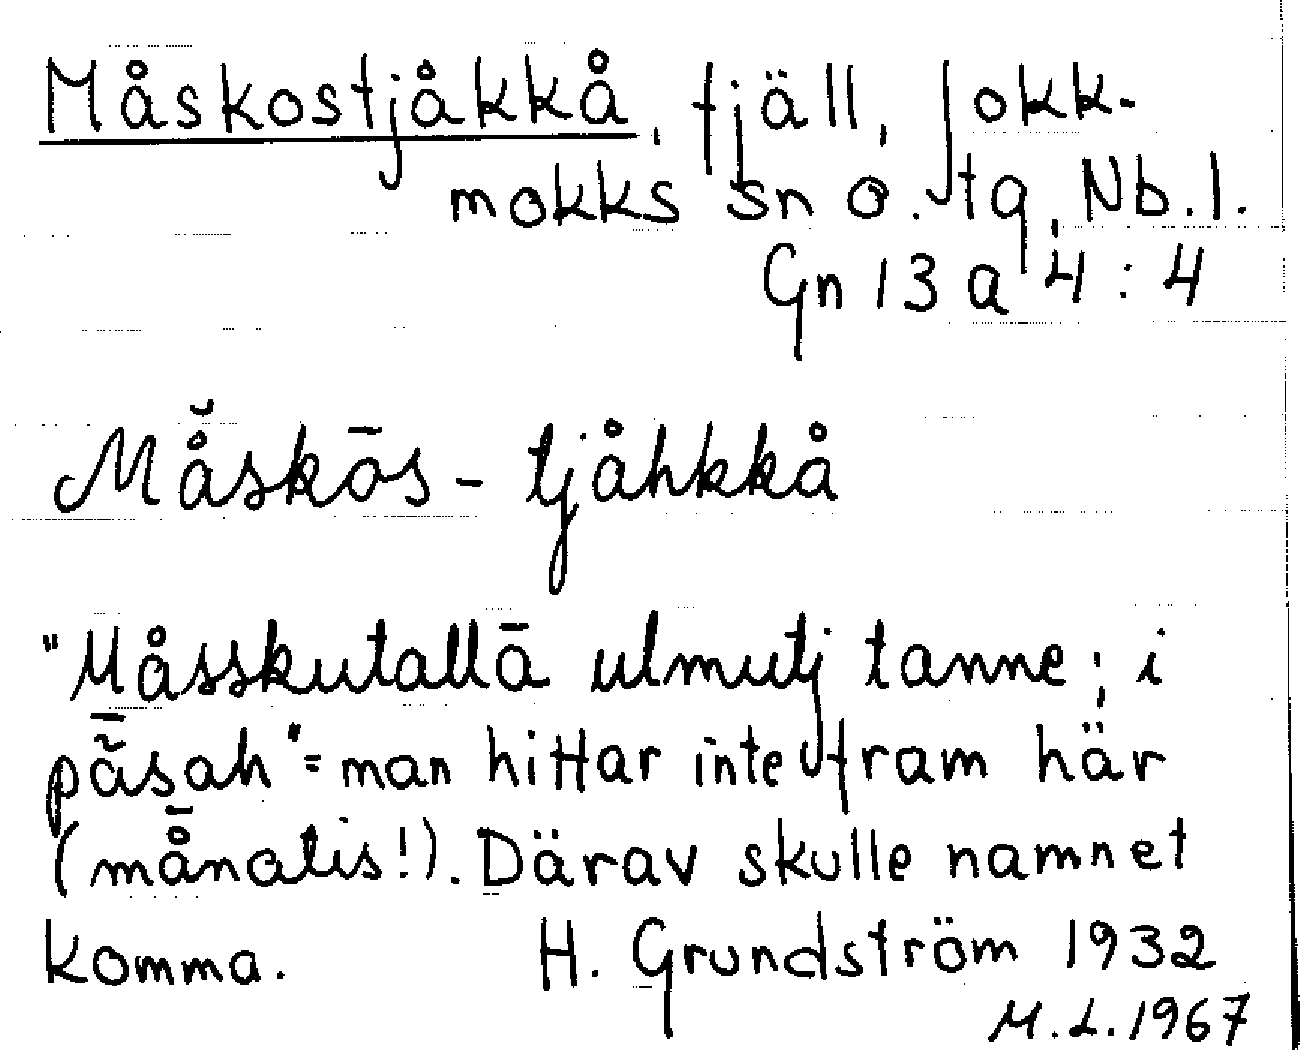 Måskostjåkkå, fjäll, Jokk-
mokks sn o. tg, Nb. l.
Gn 13 a 4 : 4
Må̆skōs - tjåhkkå
"Måsskutallā ulmutj tanne; i
pā̆sah" = man hittar inte fram här
(må̄natis!). Därav skulle namnet
komma. H. Grundström 1932
M. L. 1967